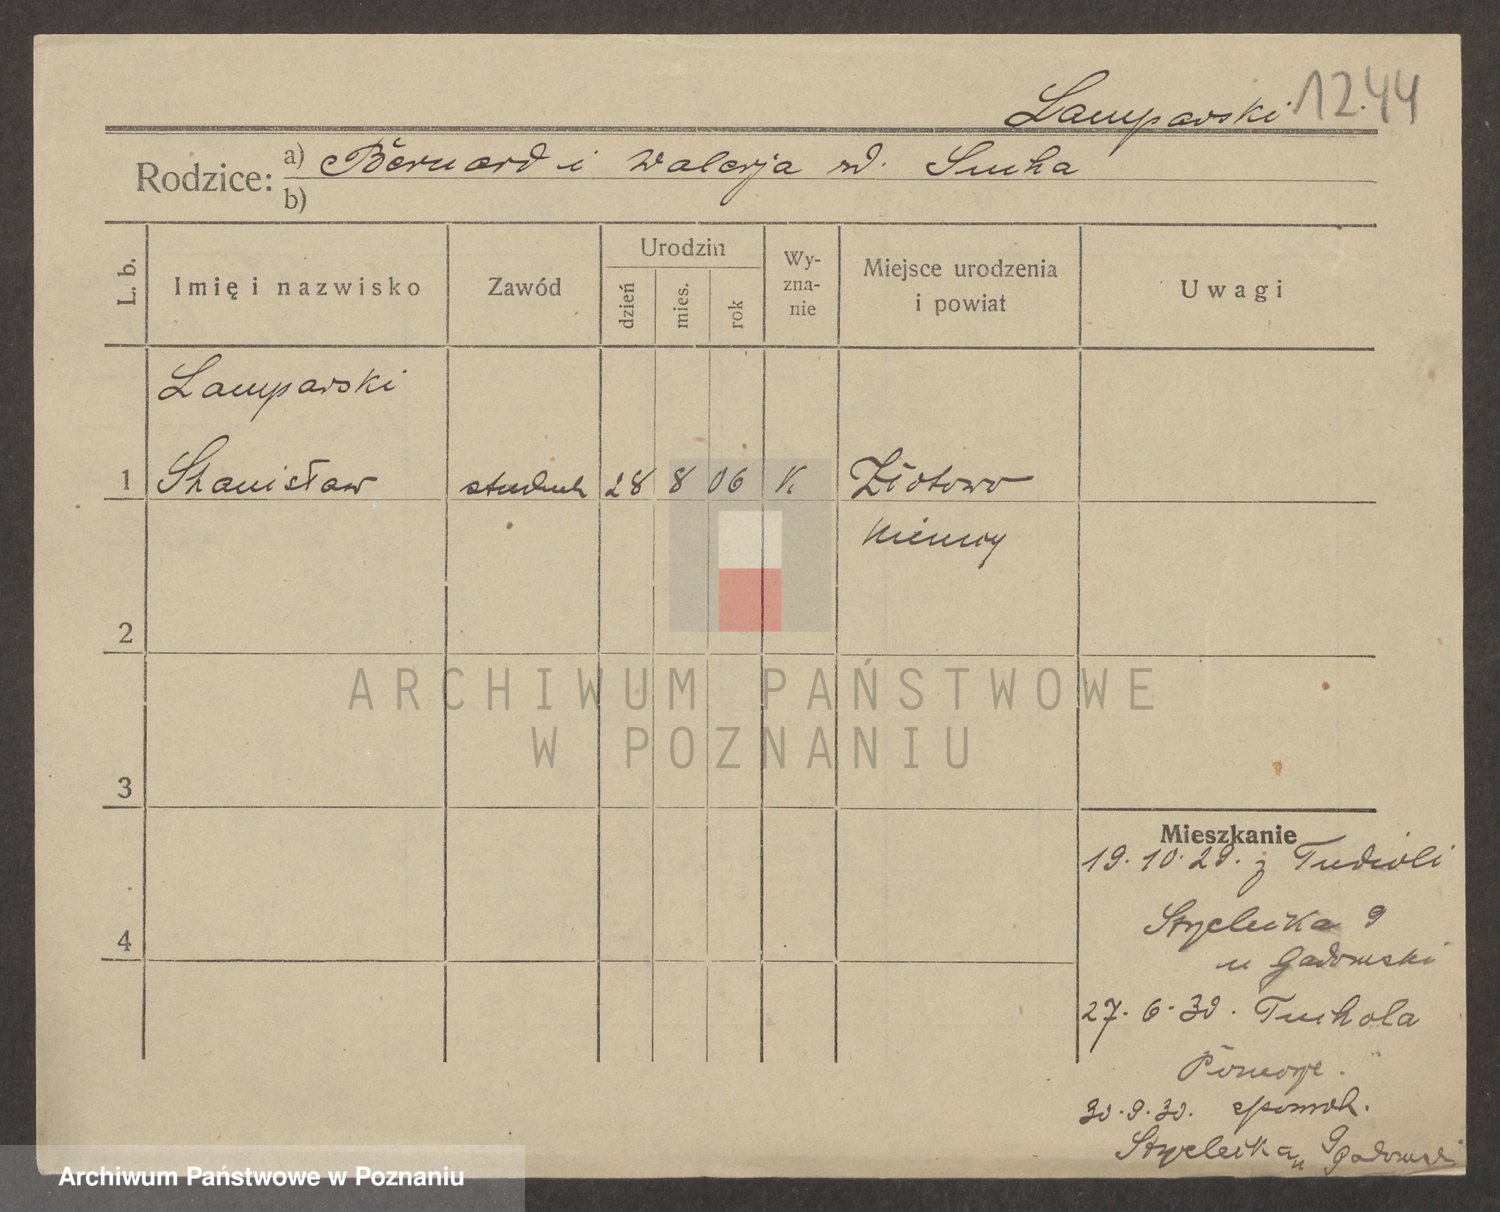 Lamparski 1244
Rodzice: a) Bernard i Walerja
b)
L. b.
Imię i nazwisko
Zawód
Urodzin
dzień
mies.
rok
Wy-
zna-
nie
Miejsce urodzenia
i powiat
Uwagi
Lamparski
1 Stanisław student 28 8 06 K Złotowo
Niemcy
2
ARCHIWUM PAŃSTWOWE
W POZNANIU
3
Mieszkanie
19. 10. 29. z Tucholi
Strzelecka 9
u Gadomski
4
27. 6. 30. Tuchola
Pomorze.
30. 9. 30.
Strzelecka 9
u Gadomski
Archiwum Państwowe w Poznaniu